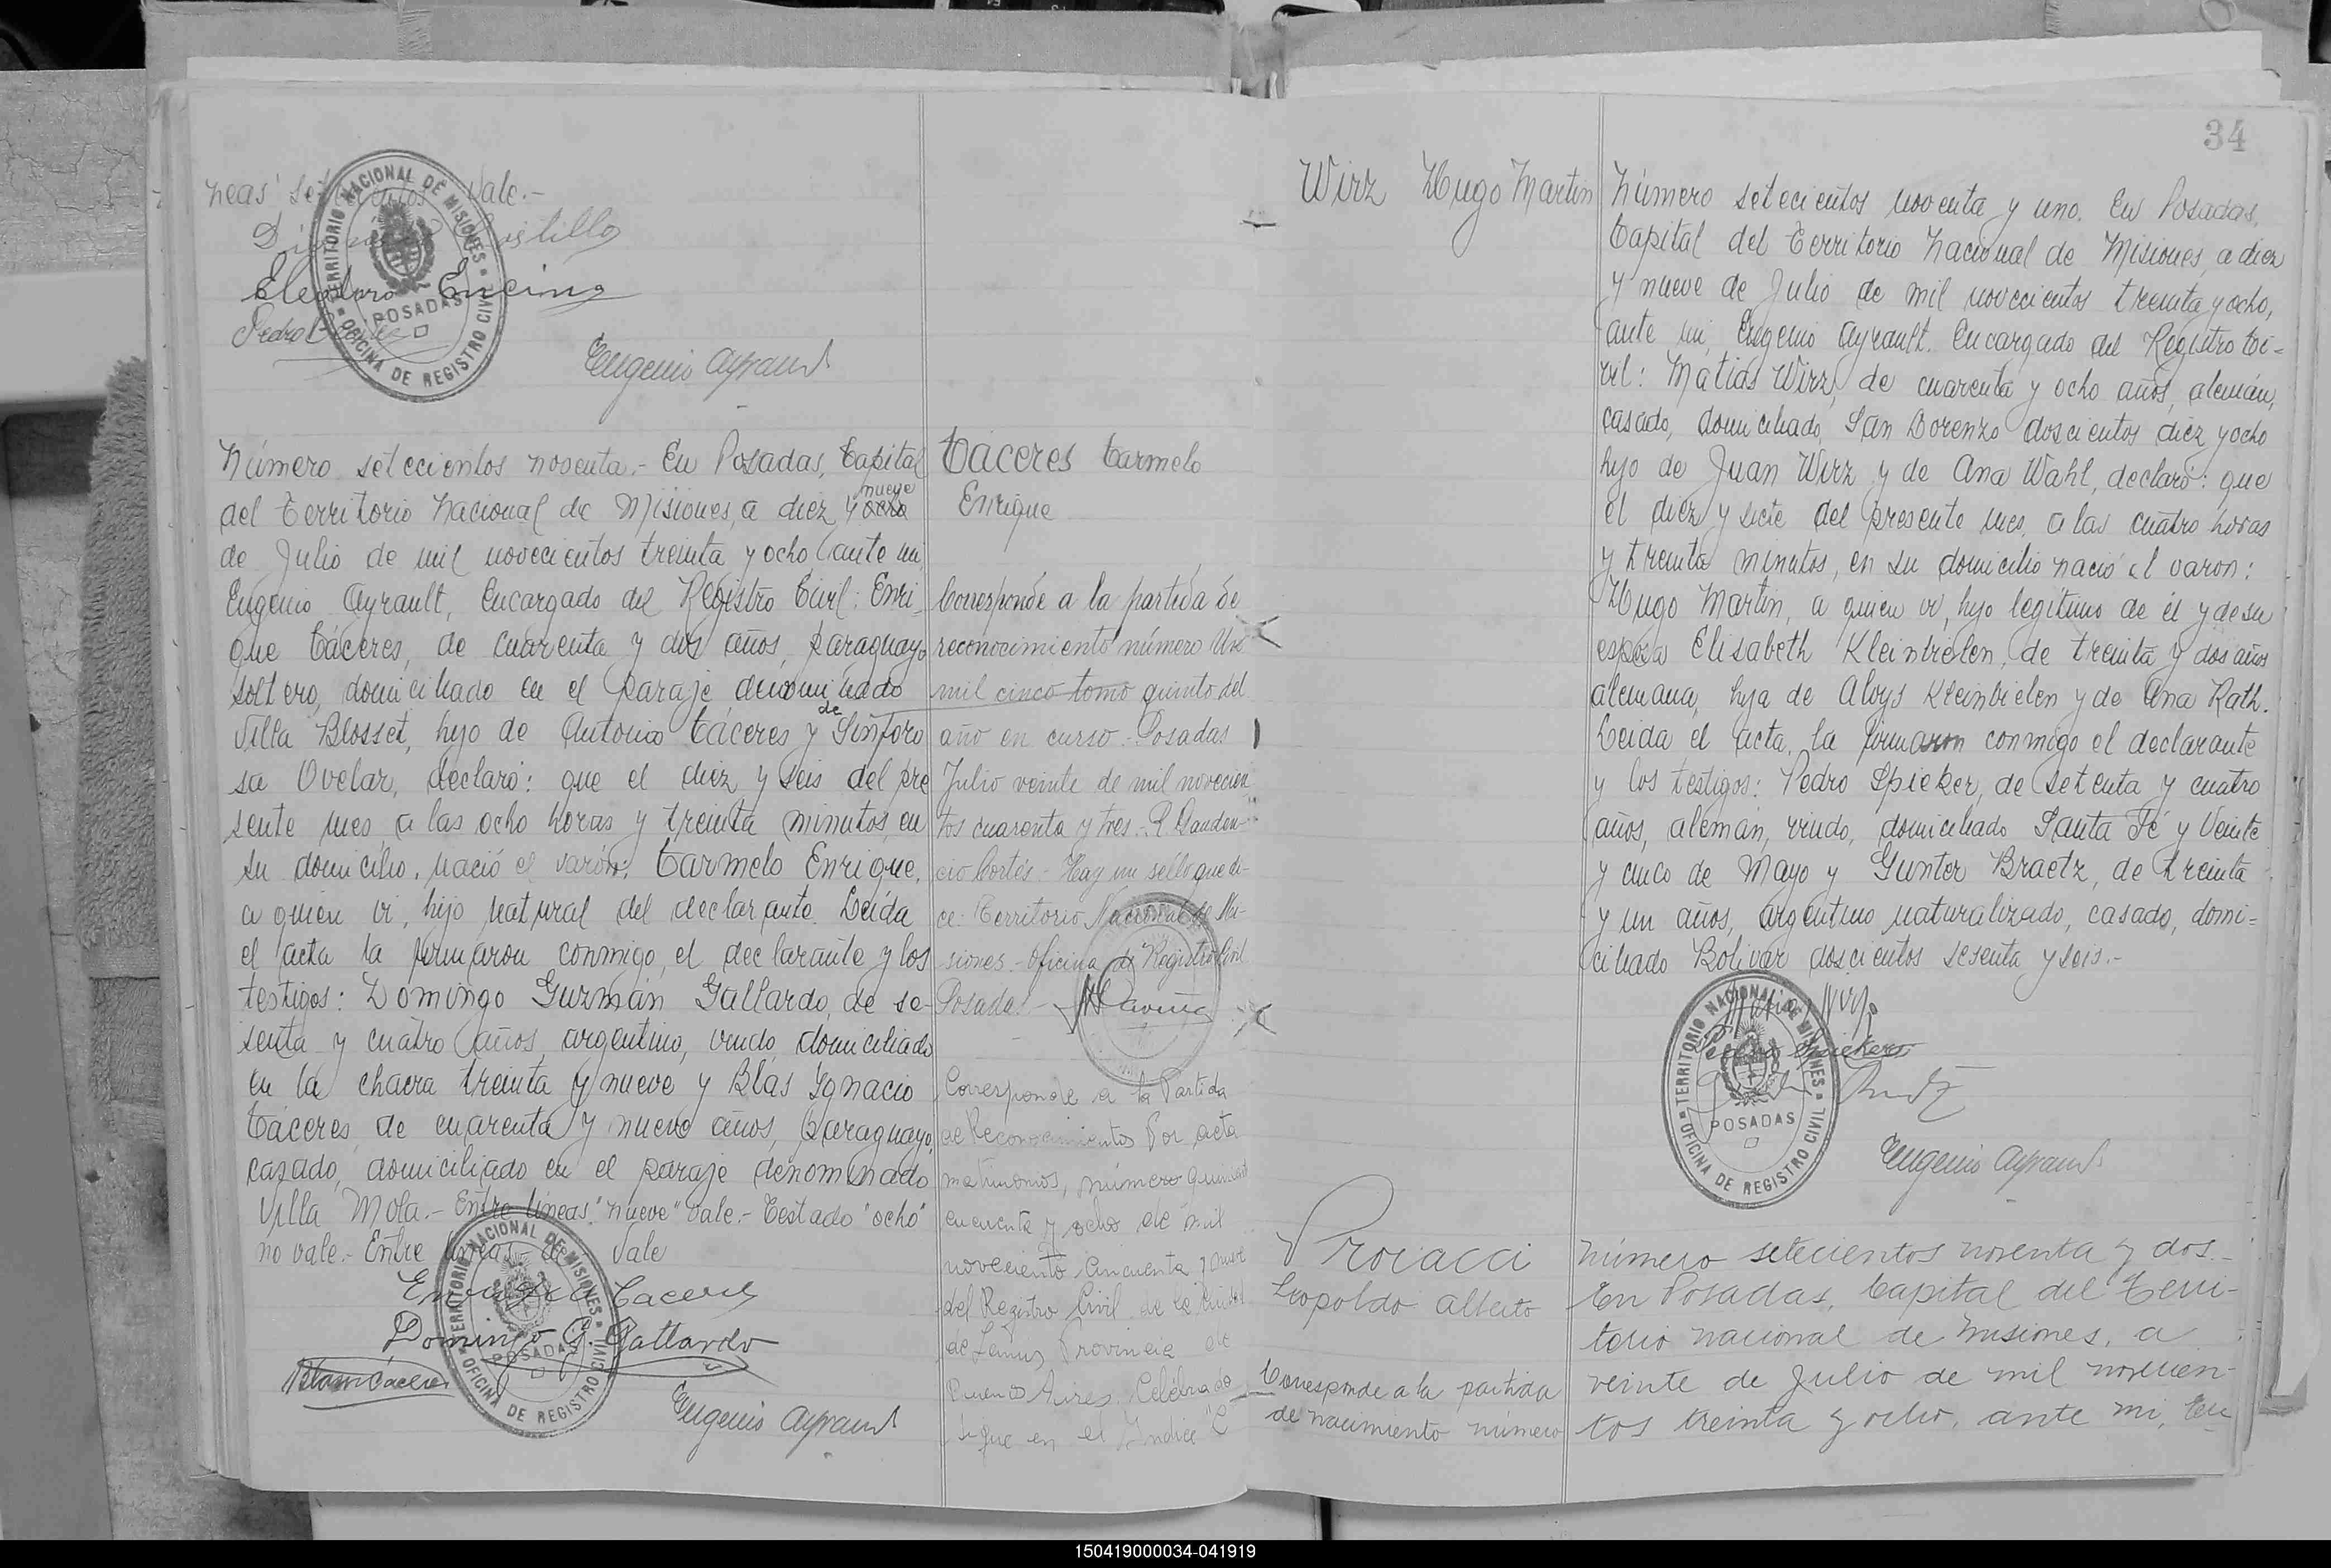 neas" Vale.-
Castillo
Eleodoro Encina
Pedro
Eugenio Ayrault
TERRITORIO NACIONAL DE MISIONES
POSADAS
OFICINA DE REGISTRO CIVIL
Número setecientos noventa.- En Posadas, Capital
del Territorio Nacional de Misiones, a diez y ocho nueve
de Julio de mil novecientos treinta y ocho ante mi,
Eugenio Ayrault, Encargado del Registro Civil: Enri-
que Cáceres, de cuarenta y dos años, paraguayo
soltero, domiciliado en el paraje denominado
Villa Blosset, hijo de Antonio Cáceres y de Sinforo
sa Ovelar, declaró: que el diez y seis del pre
sente mes a las ocho horas y treinta minutos, en
su domicilio, nació el varón: Carmelo Enrique,
a quien vi, hijo natural del declarante. Leída
el acta la firmaron conmigo, el declarante y los
testigos: Domingo Guzmán Gallardo, de se-
senta y cuatro años, argentino, viudo, domiciliado
en la chacra treinta y nueve y Blas Ignacio
Cáceres, de cuarenta y nueve años, paraguayo,
casado, domiciliado en el paraje denominado
Villa Mola.- Entre líneas "nueve" vale.- Testado "ocho"
no vale.- Entre líneas- de Vale
Enrique Caceres
Domingo G. Gallardo
Blas Cáceres
Eugenio Ayrault
TERRITORIO NACIONAL DE MISIONES
POSADAS
OFICINA DE REGISTRO CIVIL
Cáceres Carmelo
Enrique
Corresponde a la partida de
reconocimiento número Un
mil cinco tomo quinto del
año en curso.- Posadas
Julio veinte de mil novecien
tos cuarenta y tres.- R. Gauden-
cio Cortés.- Hay un sello que di-
ce: Territorio Nacional de Mi-
siones.- Oficina de Registro Civil
Posadas.-
Corresponde a la Partida
de Reconocimientos Por acta
matrimonios, número quinientos
cincuenta y ocho de mil
noveciento cincuenta y
del Registro Civil de la Ciudad
de Lanús Provincia de
Buenos Aires. Celebrado
sigue en el Indice "C"
34
Wirz Hugo Martin
Número setecientos noventa y uno. En Posadas,
Capital del Territorio Nacional de Misiones, a diez
y nueve de Julio de mil novecientos treinta y ocho,
ante mi, Eugenio Ayrault. Encargado del Registro Ci-
vil: Matias Wirz, de cuarenta y ocho años, alemán,
casado, domiciliado, San Lorenzo doscientos diez y ocho
hijo de Juan Wirz y de Ana Wahl, declaró: que
el diez y siete del presente mes, a las cuatro horas
y treinta minutos, en su domicilio nació el varon:
Hugo Martin, a quien vi, hijo legítimo de él y de su
esposa Elisabeth Kleinbielen, de treinta y dos años
alemana, hija de Aloys Kleinbielen y de Ana Rath.
Leida el acta, la firmaron conmigo el declarante
y los testigos: Pedro Spieker, de setenta y cuatro
años, alemán, viudo, domiciliado Santa Fé y Veinte
y cinco de Mayo y Gunter Braetz, de treinta
y un años, argentino naturalizado, casado, domi-
ciliado Bolivar doscientos sesenta y seis.-
Matias Wirz
Pedro Spiekers
Eugenio Ayrault
TERRITORIO NACIONAL DE MISIONES
POSADAS
OFICINA DE REGISTRO CIVIL
Proiacci
Leopoldo Alberto
Corresponde a la partida
de nacimiento número
Número setecientos noventa y dos.-
En Posadas, Capital del Terri-
torio Nacional de Misiones, a
veinte de Julio de mil novecien-
tos treinta y ocho, ante mi, Eu-
150419000034-041919